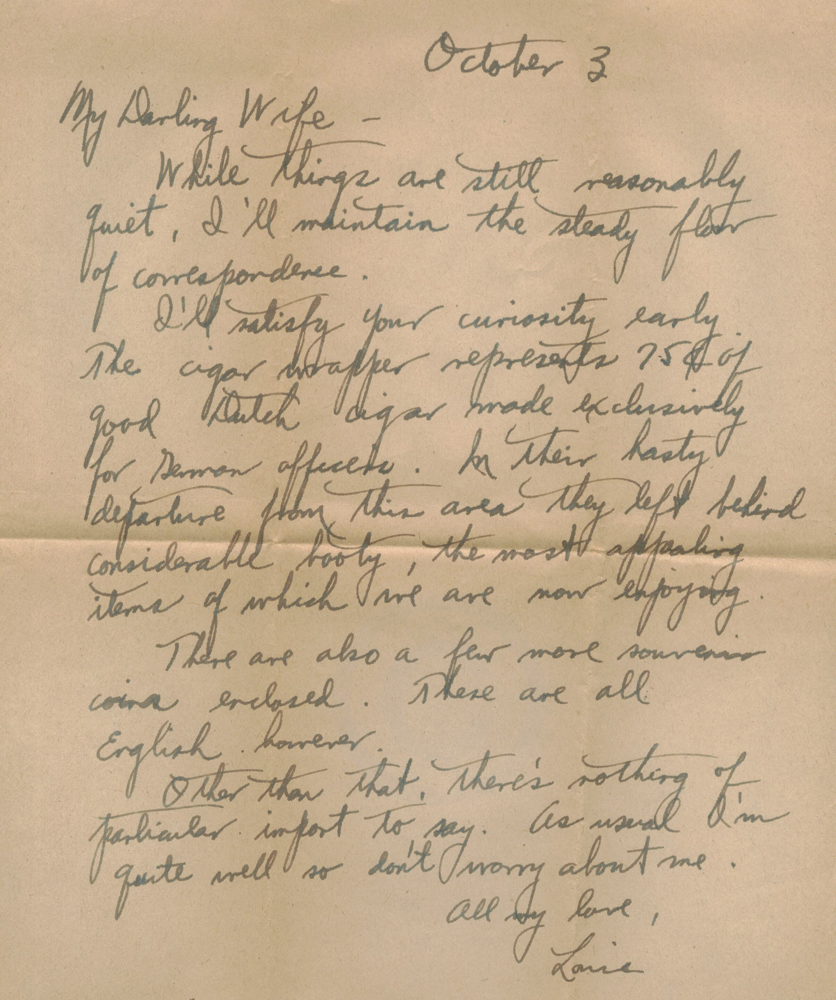 October 3
My Darling Wife -
While things are still reasonably
quiet, I'll maintain the steady flow
of correspondence.
I'll satisfy your curiosity early.
The cigar wrapper represents 75¢ of
good Dutch cigar made exclusively
for German officers. In their hasty
departure from this area they left behind
considerable booty, the most appealing
items of which we are now enjoying.
There are also a few more souvenir
coins enclosed. These are all
English however.
Other than that, there's nothing of
particular import to say. As usual I'm
quite well so don't worry about me.
All my love,
Louie